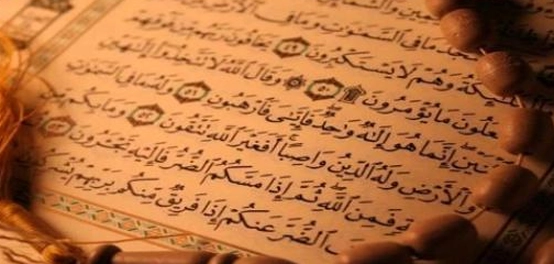 يَسْجُدُ مَا فِى ٱلسَّمَٰوَٰتِ وَمَا فِى
لَٰٓئِكَةُ وَهُمْ لَا يَسْتَكْبِرُونَ ٤٩ يَخَافُونَ رَبَّهُم مِّن فَوْقِهِمْ
عَلُونَ مَا يُؤْمَرُونَ ۩ ٥٠ ۞ وَقَالَ ٱللَّهُ لَا تَتَّخِذُوٓا۟ إِلَٰهَيْنِ
نَيْنِ إِنَّمَا هُوَ إِلَٰهٌ وَٰحِدٌ فَإِيَّٰىَ فَٱرْهَبُونِ ٥١ وَلَهُۥ مَا فِى ٱلسَّمَٰوَٰتِ
وَٱلْأَرْضِ وَلَهُ ٱلدِّينُ وَاصِبًا أَفَغَيْرَ ٱللَّهِ تَتَّقُونَ ٥٢ وَمَا بِكُم مِّن
ةٍ فَمِنَ ٱللَّهِ ثُمَّ إِذَا مَسَّكُمُ ٱلضُّرُّ فَإِلَيْهِ تَجْـَٔرُونَ ٥٣
ٱلضُّرَّ عَنكُمْ إِذَا فَرِيقٌ مِّنكُم بِرَبِّهِمْ يُشْرِكُونَ